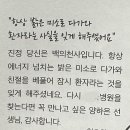 "항상 밝은 미소로 다가와
환자라는 사실을 잊게 해주셨어요"
진정 당신은 백의천사입니다. 항상
에너지 넘치는 밝은 미소로 다가와
친절을 베풀어 잠시 환자라는 것을
잊게 해주었습니다. 다시 병원을
찾는다면 꼭 만나고 싶은 양하은 선
생님, 감사합니다.